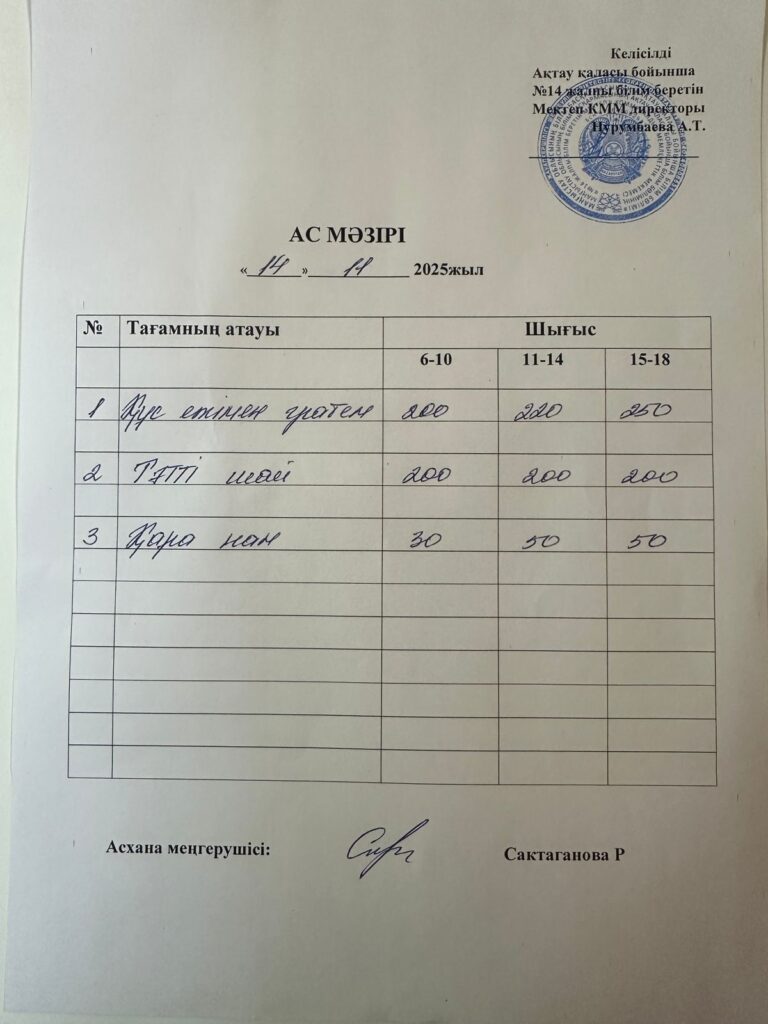 Келісілді
Ақтау қаласы бойынша
№14 жалпы білім беретін
Мектеп КММ директоры
Нурумбаева А.Т.
АС МӘЗІРІ
«14» 11 2025жыл
№ Тағамның атауы Шығыс
6-10 11-14 15-18
1 Құс етімен гратен 200 220 250
2 Тәтті шай 200 200 200
3 Қара нан 30 50 50
Асхана меңгерушісі: Сактаганова Р